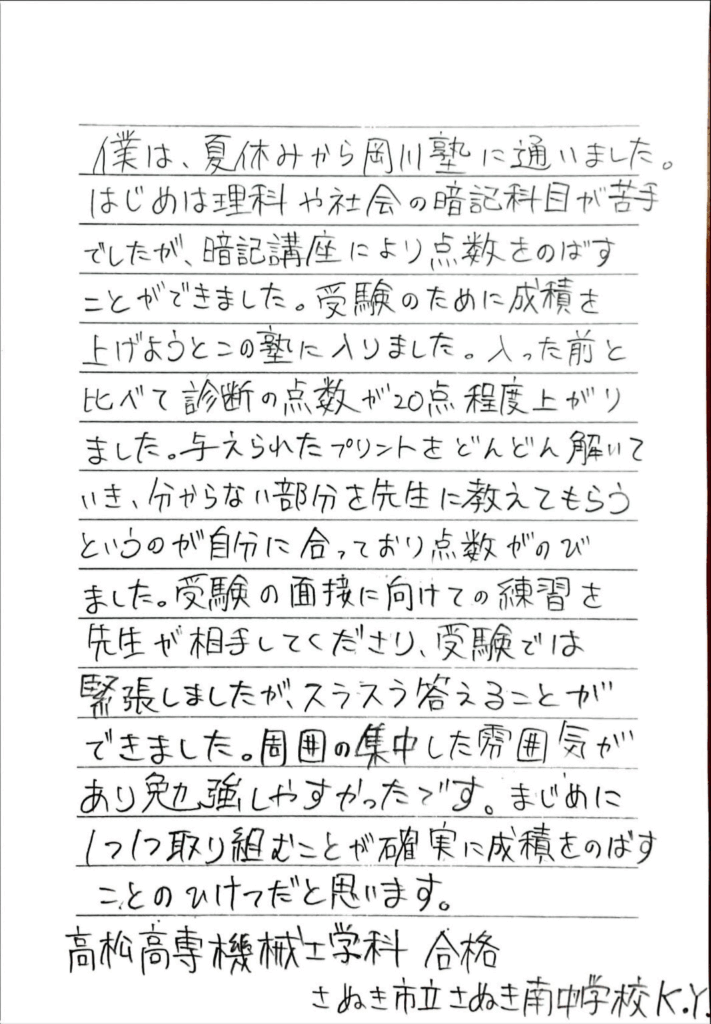 僕は、夏休みから岡川塾に通いました。
はじめは理科や社会の暗記科目が苦手
でしたが、暗記講座により点数をのばす
ことができました。受験のために成積を
上げようとこの塾に入りました。入った前と
比べて診断の点数が20点程度上がり
ました。与えられたプリントをどんどん解いて
いき、分からない部分を先生に教えてもらう
というのが自分に合っており点数がのび
ました。受験の面接に向けての練習を
先生が相手してくださり、受験では
緊張しましたが、スラスラ答えることが
できました。周囲の集中した雰囲気が
あり勉強しやすかったです。まじめに
1つ1つ取り組むことが確実に成積をのばす
ことのひけつだと思います。
高松高専機械工学科 合格
さぬき市立さぬき南中学校 K.Y.